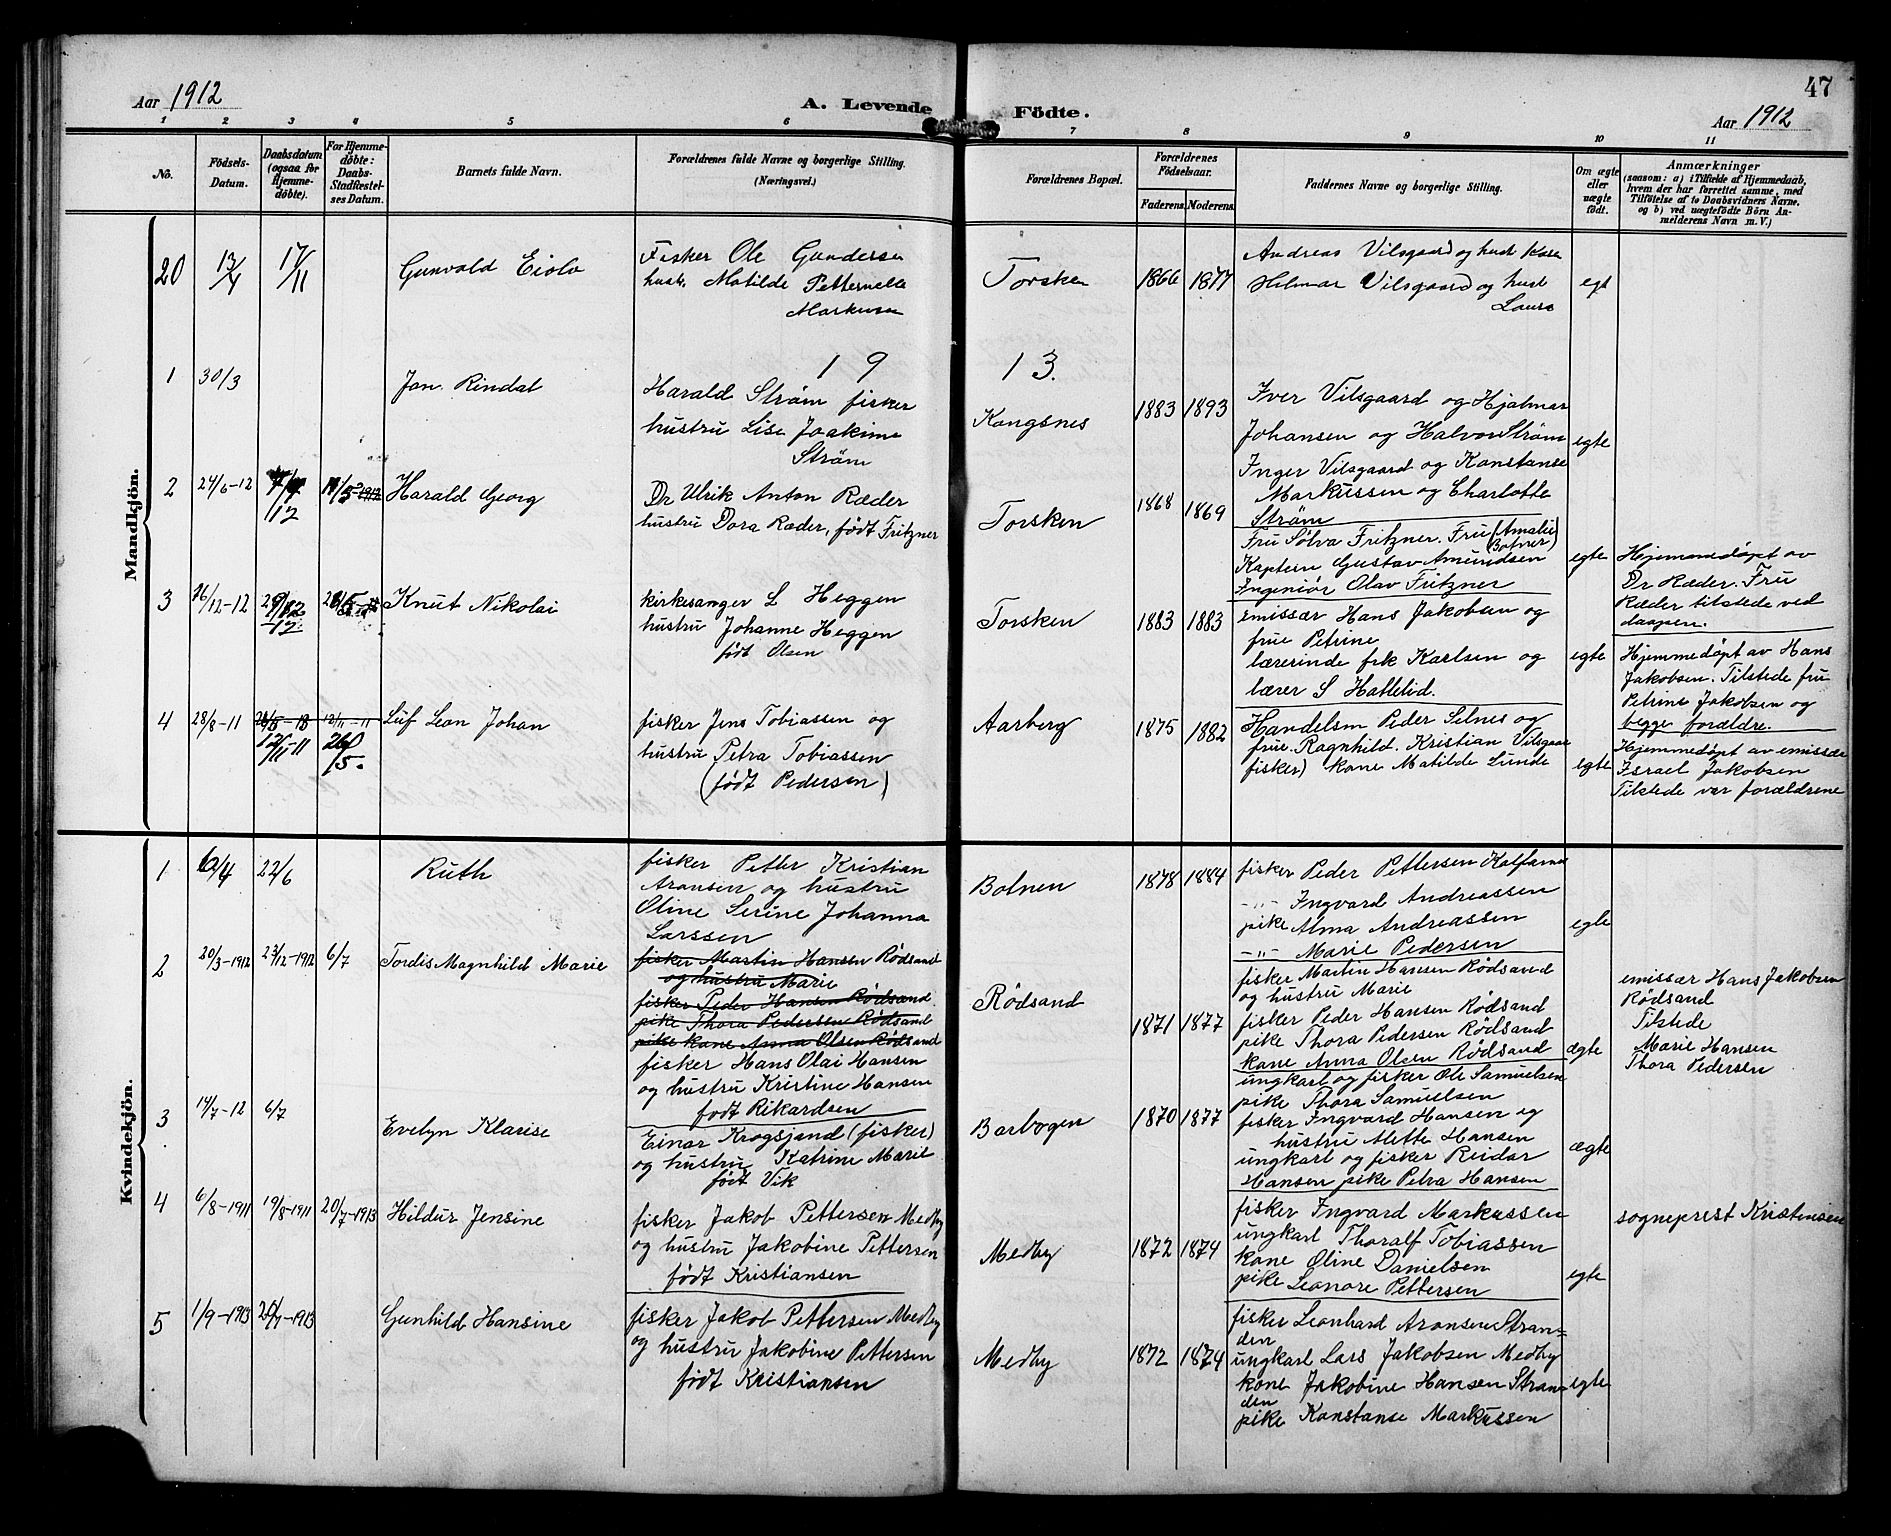 47
Aar 1912
A. Levende Födte.
Aar 1912
1 2 3 4 5 6 7 8 9 10 11
No.
Födsels-
Datum.
Daabsdatum
(ogsaa for
Hjemme-
döbte).
For Hjemme-
döbte:
Daabs-
Stadfæstel-
ses Datum.
Barnets fulde Navn.
Forældrenes fulde Navne og borgerlige Stilling.
(Næringsvei.)
Forældrenes Bopæl.
Forældrenes
Födselsaar.
Faderens. Moderens.
Faddernes Navne og borgerlige Stilling.
Om ægte
eller
uægte
födt.
Anmærkninger
(saasom: a) i Tilfælde af Hjemmedaab,
hvem der har forrettet samme, med
Tilföielse af to Daabsvidners Navne,
og b) ved uægtefödte Börn An-
melderens Navn m. V.)
Mandkjön.
20
17/11
Gunvald Eiolv
Fisker Ole Gundersen
hustr. Matilde Petternelle
Markusen
Torsken
1866 1877
Andreas Vilsgaard og hust Karen
Hilmar Vilsgaard og hust
Laura
egt
19 13.
1
30/3
Jon. Rindal
Harald Strøm fisker
hustru Lise Joakime
Strøm
Kongsnes
1883 1893
Iver Vilsgaard og Hjalmar
Johansen og Halvor Strøm
Inger Vilsgaard og Konstanse
Markussen og Charlotte
Strøm
egte
2
24/6-12
Harald Georg
Dr Ulrik Anton Ræder
hustru Dora Ræder, født Fritzner
Torsken
1868 1869
Fru Sølva Fritzner. Fru (Amalie
Botner)
Kaptein Gustav Amundsen
Ingeniør Olav Fritzner
egte
Hjemmedøpt av
Dr Ræder. Fru
Ræder tilstede ved
daapen.
3
Knut Nikolai
kirkesanger L Heggen
hustru Johanne Heggen
født Olsen
Torsken
1883 1883
emissær Hans Jakobsen og
frue Petrine
lærerinde frk Karlsen og
lærer S Hattelid.
egte
Hjemmedøpt av Hans
Jakobsen. Tilstede fru
Petrine Jakobsen og
begge forældre.
4
28/8-11
12/11-11
12/11-11
26/5.
Leif Leon Johan
fisker Jens Tobiassen og
hustru Petra Tobiassen
(født Pedersen)
Aarberg
1875 1882
Handelsm Peder Selnes og
frue. Ragnhild. Kristian Vilsgaar
fisker) kone Matilde Lunde
egte
Hjemmedøpt av emissær
Israel Jakobsen
Tilstede var forældrene
Kvindekjön.
1
22/6
Ruth
fisker Petter Kristian
Aronsen og hustru
Oline Serine Johanna
Larssen
Botnen
1878 1884
fisker Peder Pettersen Kalfarnes
-"- Ingvard Andreassen
pike Alma Andreassen
-"- Marie Pedersen
egte
2
20/3-1912
23/12-1912
6/7
Tordis Magnhild Marie
fisker Martin Hansen Rödsand
og hustru Marie
fisker Peder Hansen Rödsand.
pike Thora Pedersen Rödsand
pike kone Anna Olsen Rödsand
fisker Hans Olai Hansen
og hustru Kristine Hansen
født Rikardsen
Rödsand
1871 1877
fisker Martin Hansen Rödsand
og hustru Marie
fisker Peder Hansen Rödsand
pike Thora Pedersen Rödsand
kone Anna Olsen Rödsand
ægte
emissær Hans Jakobsen
Rödsand
Tilstede
Marie Hansen
Thora Pedersen
3
14/7-12
6/7
Evelyn Klarise
Einar Krogsjand (fisker)
og hustru Katrine Marie
født Vik
Barbogen
1870 1877
ungkarl og fisker Ole Samuelsen
pike Thora Samuelsen
fisker Ingvard Hansen og
hustru Mette Hansen
ungkarl og fisker Reidar
Hansen pike Petra Hansen
ægte
4
6/8-1911
19/8-1911
20/7-1913
Hildur Jensine
fisker Jakob Pettersen Medby
og hustru Jakobine Pettersen
født Kristiansen
Medby
1872 1874
fisker Ingvard Markussen
ungkarl Thoralf Tobiassen
kone Oline Danielsen
pike Leonore Pettersen
egte
sogneprest Kristensen
5
1/9-1913
20/7-1913
Gunhild Hansine
fisker Jakob Pettersen Medby
og hustru Jakobine Pettersen
født Kristiansen
Medby
1872 1874
fisker Leonhard Aronsen Stran=
den
ungkarl Lars Jakobsen Medby
kone Jakobine Hansen Stran=
den
pike Konstanse Markussen
egte